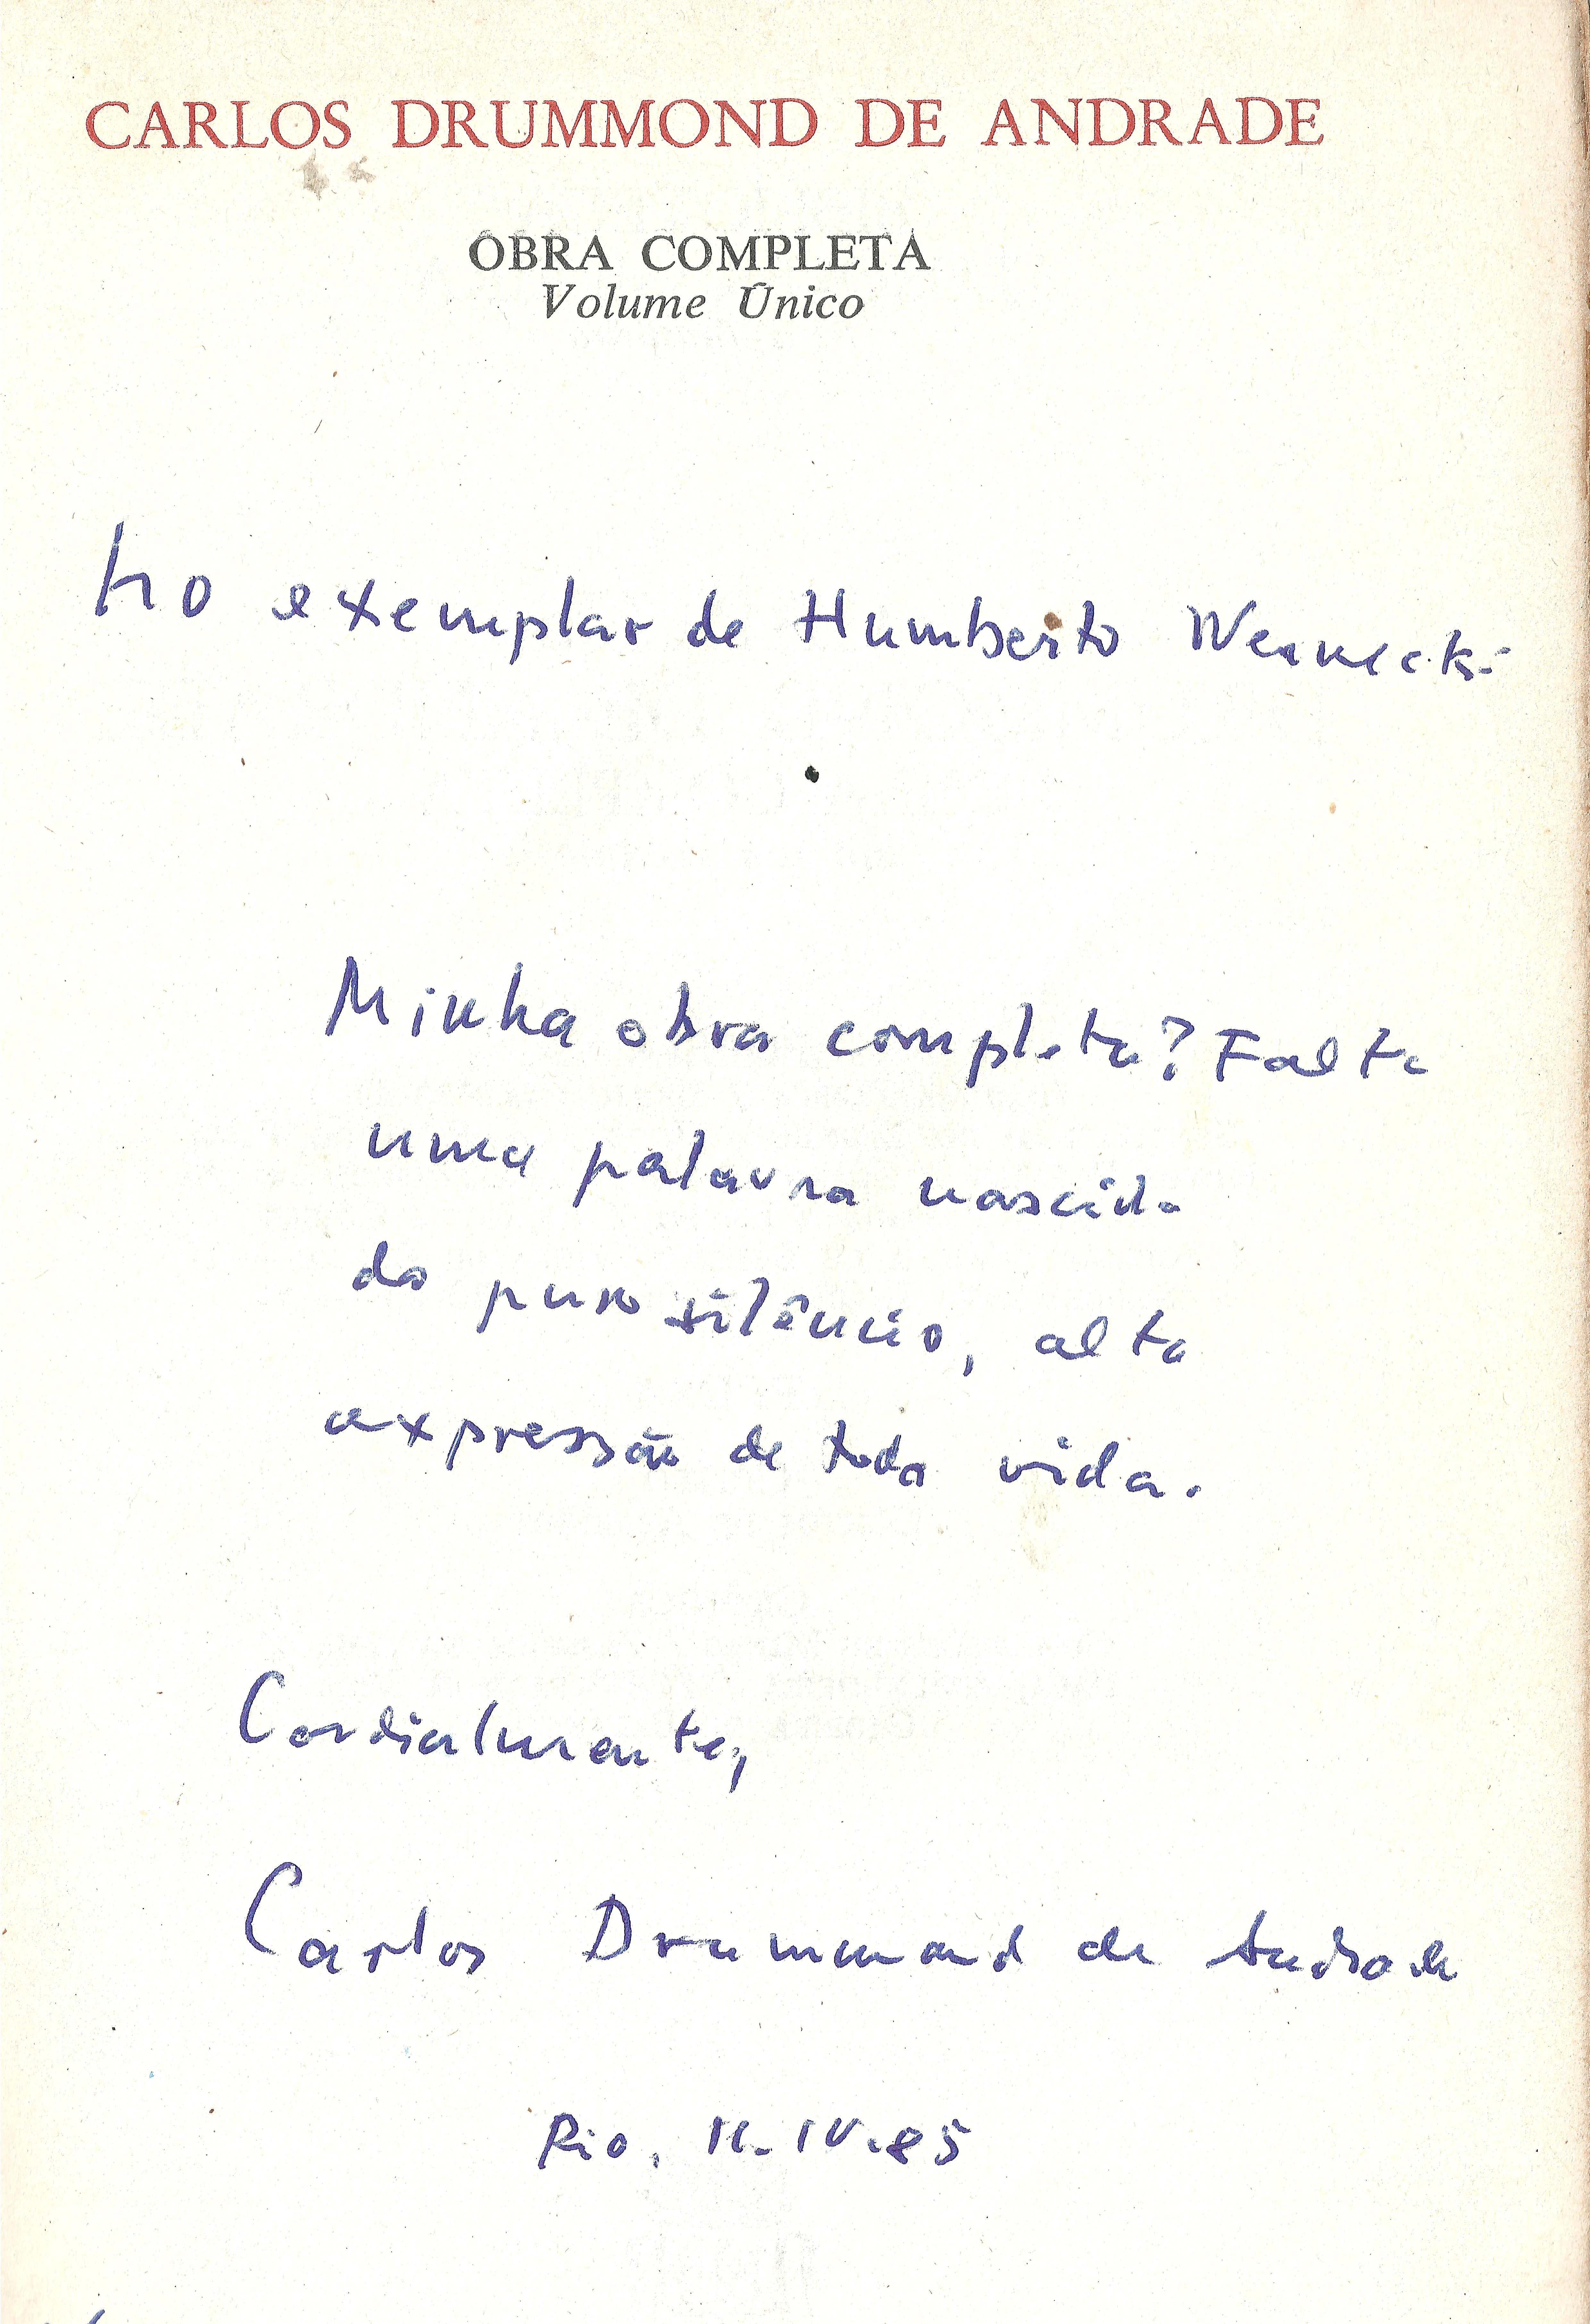 CARLOS DRUMMOND DE ANDRADE
OBRA COMPLETA
Volume Único
No exemplar de Humberto Werneck
Minha obra completa? Falta
uma palavra nascida
do puro silêncio, alta
expressão de toda vida.
Cordialmente,
Carlos Drummond de Andrade
Rio, 11.IV.85